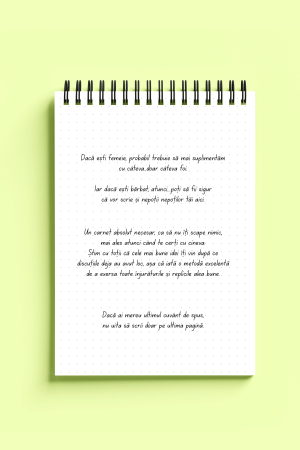 Dacă ești femeie, probabil trebuie să mai suplimentăm
cu câteva..doar câteva foi.
Iar dacă ești bărbat, atunci, poți să fii sigur
că vor scrie și nepoții nepoților tăi aici.
Un carnet absolut necesar, ca să nu îți scape nimic,
mai ales atunci când te cerți cu cineva.
Știm cu toții că cele mai bune idei îți vin după ce
discuțiile deja au avut loc, așa că iată o metodă excelentă
de a exersa toate înjurăturile și replicile alea bune.
Dacă ai mereu ultimul cuvânt de spus,
nu uita să scrii doar pe ultima pagină.